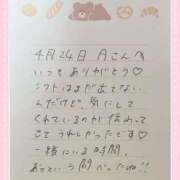 4月24日 月さんへ
いつもありがとう♡
シフトはまだ出てない
んだけど、気にして
くれているのが伝わって
とてもうれしかったです♡
一緒にいる時間、
あっという間だったね!!